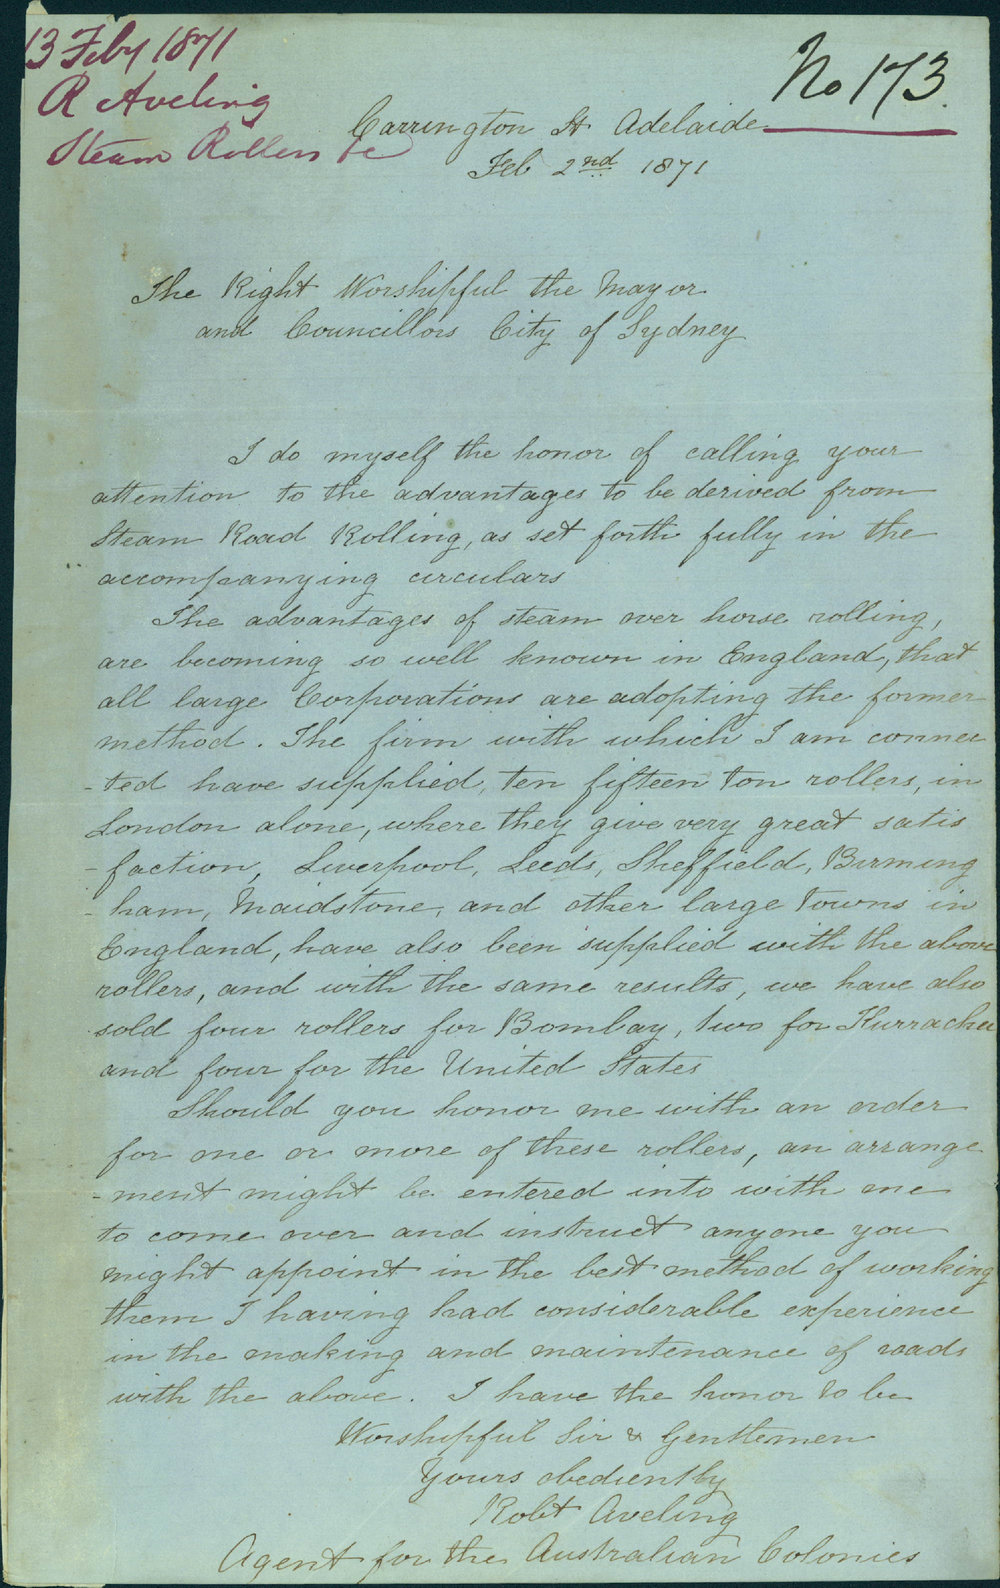 13 Feby 1871
R Aveling
Steam Rollers &c
No 173.
Carrington St Adelaide
Feb 2nd 1871
The Right Worshipful the Mayor
and Councillors City of Sydney
I do myself the honor of calling your
attention to the advantages to be derived from
Steam Road Rolling, as set forth fully in the
accompanying circulars
The advantages of steam over horse rolling,
are becoming so well known in England, that
all large Corporations are adopting the former
method. The firm with which I am connec
-ted have supplied, ten fifteen ton rollers, in
London alone, where they give very great satis
-faction, Liverpool, Leeds, Sheffield, Birming
-ham, Maidstone, and other large towns in
England, have also been supplied with the above
rollers, and with the same results, we have also
sold four rollers for Bombay, two for Kurrachee
and four for the United States
Should you honor me with an order
for one or more of these rollers, an arrange
-ment might be entered into with me
to come over and instruct anyone you
might appoint in the best method of working
them I having had considerable experience
in the making and maintenance of roads
with the above. I have the honor to be
Worshipful Sir & Gentlemen
Yours obediently
Robt Aveling
Agent for the Australian Colonies